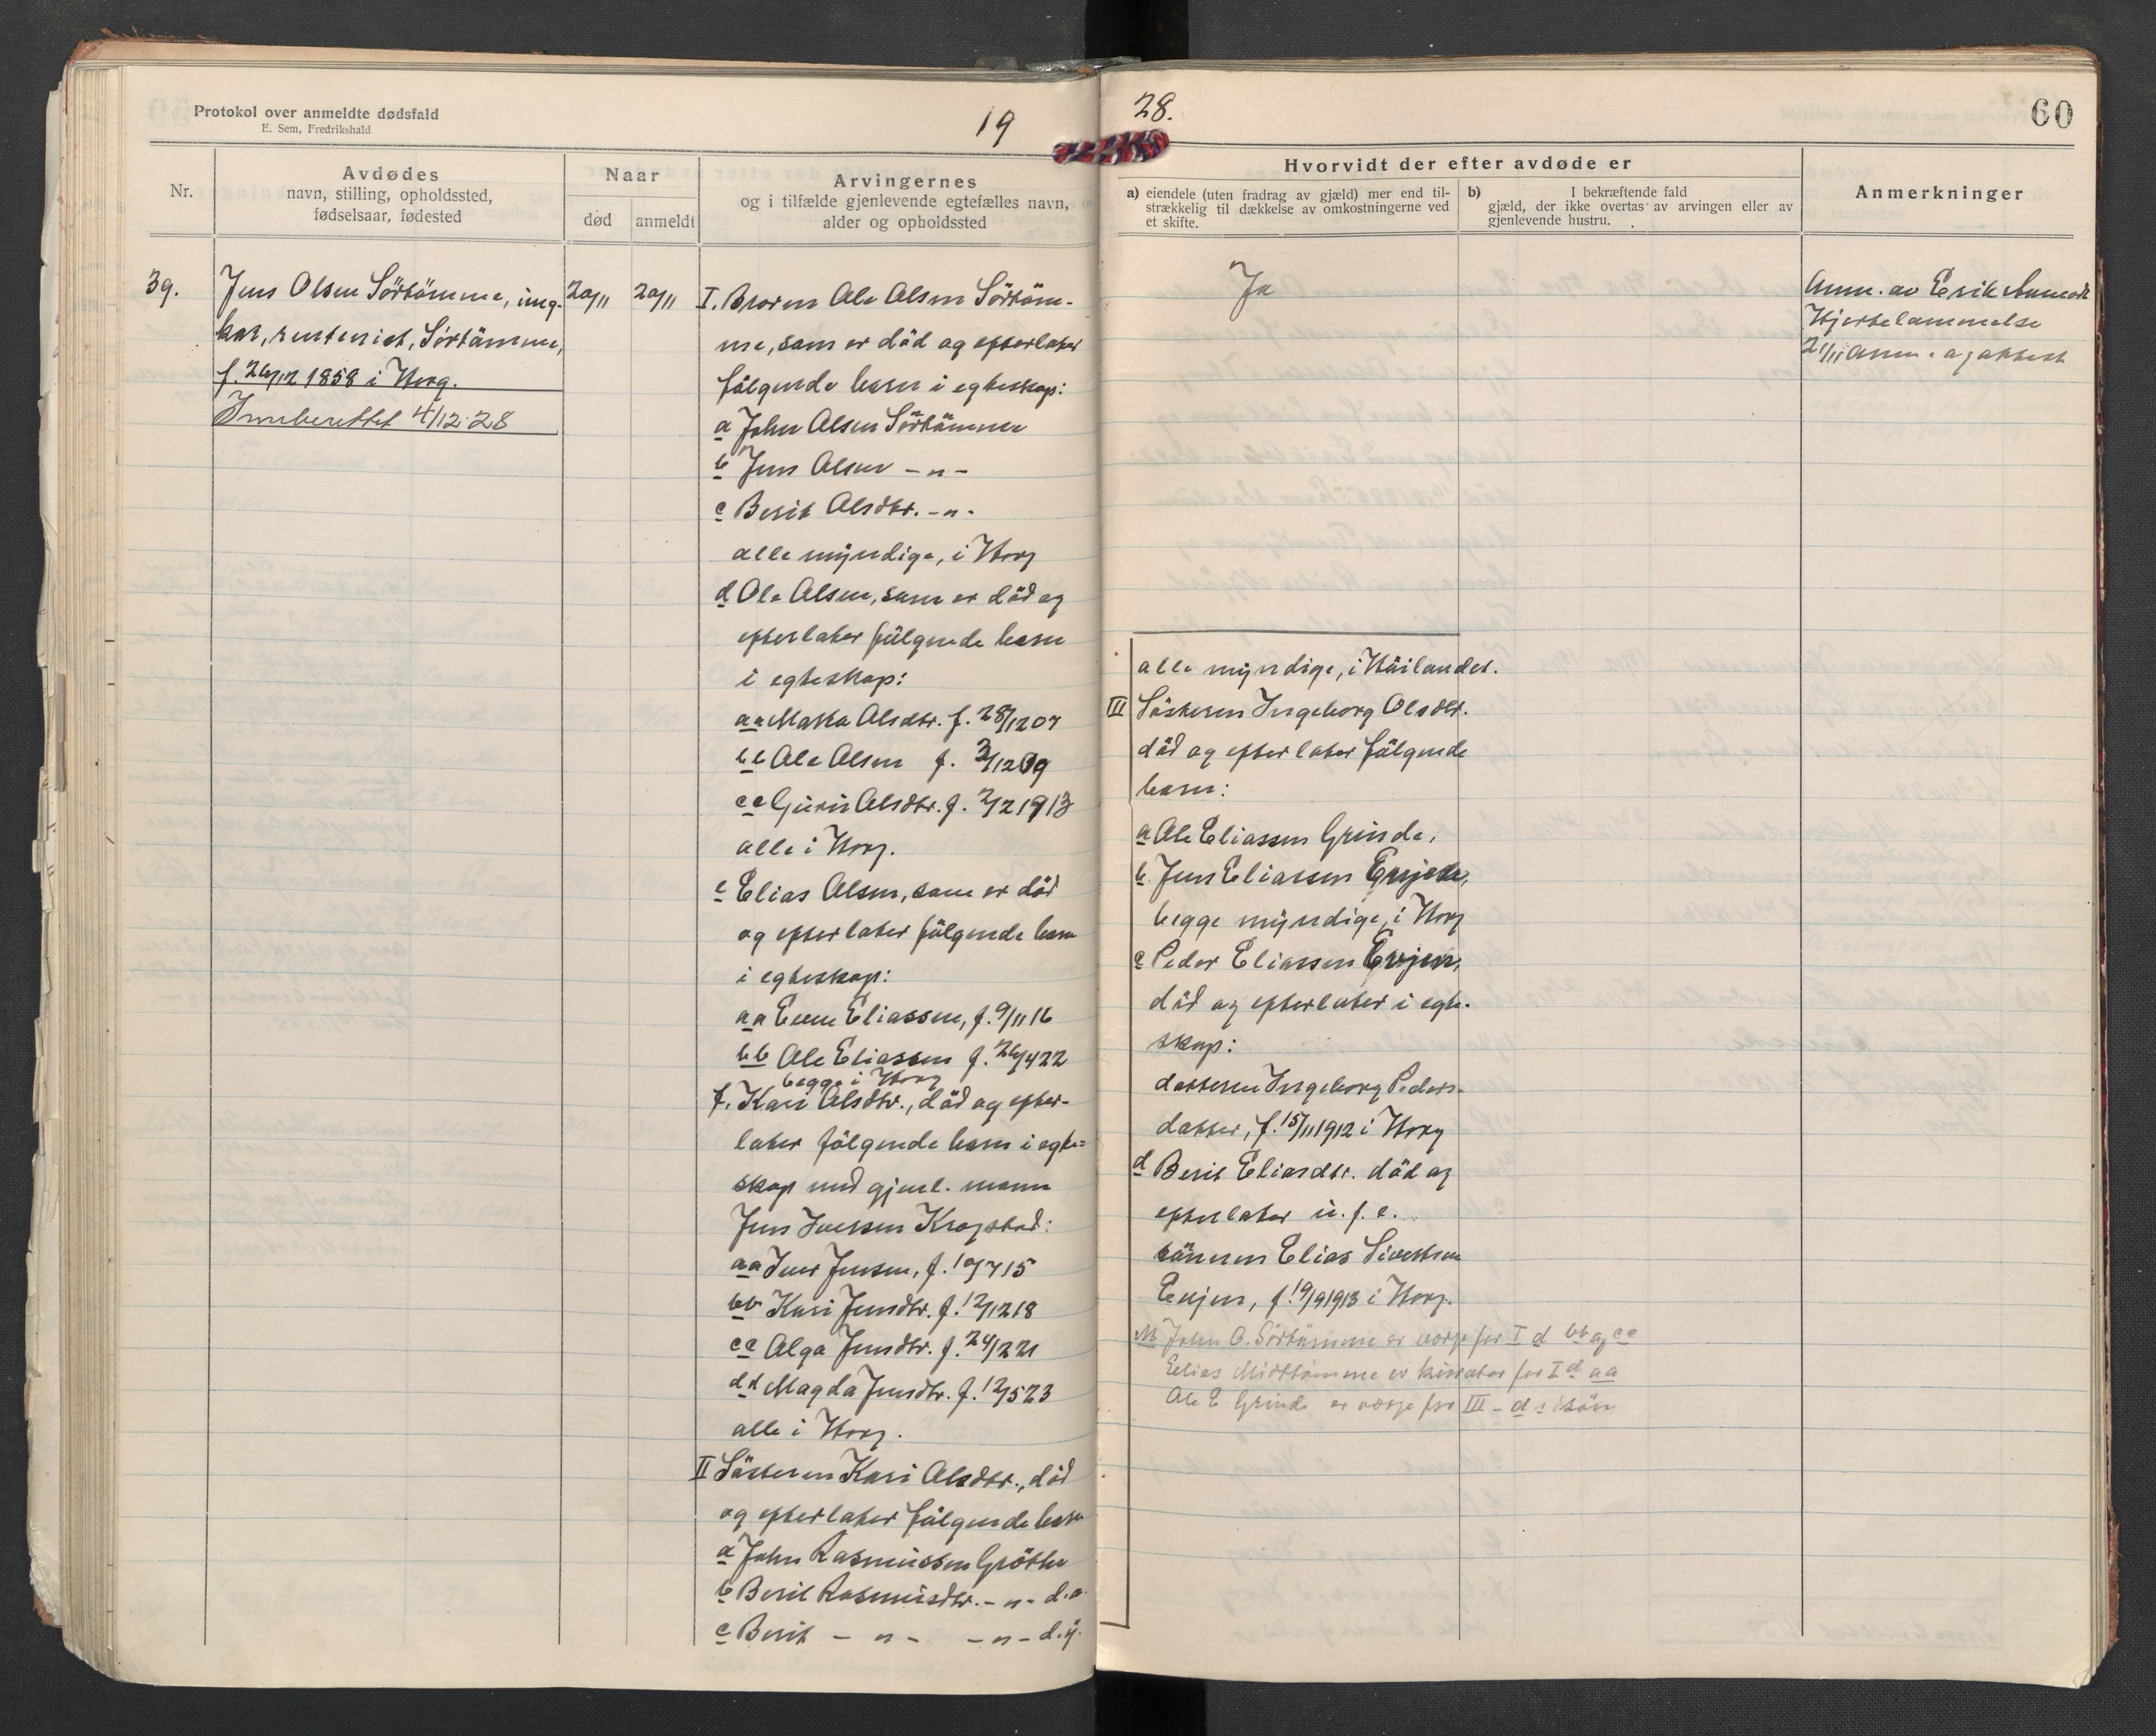 Protokol over anmeldte dødsfald
E. Sem, Fredrikshald
19
28.
60
Nr.
Avdødes
navn, stilling, opholdssted,
fødselsaar, fødested
Naar
død
anmeldt
Arvingernes
og i tilfælde gjenlevende egtefælles navn,
alder og opholdssted
Hvorvidt der efter avdøde er
a) eiendele (uten fradrag av gjæld) mer end til-
strækkelig til dækkelse av omkostningerne ved
et skifte.
b) I bekræftende fald
gjæld, der ikke overtas av arvingen eller av
gjenlevende hustru.
Anmerkninger
39.
Jens Olsen Sörtömme, ung-
kar, rentenist, Sörtömme,
f. 26/12 1858 i Horg.
Innberettet 4/12.28
20/11
20/11
I. Broren Ole Olsen Sörtöm-
me, som er död og efterlater
fölgende barn i egteskap:
a John Olsen Sörtömme
b Jens Olsen -"-
c Berit Olsdtr. -"-
alle myndige, i Horg
d Ole Olsen, som er död og
efterlater fölgende barn
i egteskap:
aa Marta Olsdtr. f. 28/12 07
bb Ole Olsen f. 3/12 09
cc Guri Olsdtr. f. 2/2 1913
alle i Horg.
e Elias Olsen, som er död
og efterlater fölgende barn
i egteskap:
aa Even Eliassen, f. 9/11 16
bb Ole Eliassen f. 26/4 22
begge i Horg
f. Kari Olsdtr., död og efter-
later fölgende barn i egte=
skap med gjenl. mann
Jens Iversen Krogstad:
aa Iver Jensen, f. 10/7 15
bb Kari Jensdtr. f. 12/12 18
cc Olga Jensdtr. f. 24/2 21
dd Magda Jensdtr. f. 12/5 23
alle i Horg.
II Sösteren Kari Olsdtr., död
og efterlater fölgende barn
a John Rasmussen Gröthe
b Berit Rasmusdtr. -"- d.e.
c Berit -"- -"- d.y.
Ja
alle myndige, i Höilandet.
III Sösteren Ingeborg Olsdtr.
död og efterlater fölgende
barn:
a Ole Eliassen Grinde,
b. Jens Eliassen Evjen,
begge myndige, i Horg
c Peder Eliassen Evjen,
död og efterlater i egte-
skap:
datteren Ingeborg Peders-
datter, f. 15/11 1912 i Horg
d Berit Eliasdtr. död og
efterlater u. f. e.
sönnen Elias Sivertsen
Evjen, f. 19/9 1913 i Horg.
John O. Sörtömme er verge for I d bb og cc
Elias Midttömme er kurator for I d aa
Ole E Grinde er verge for III - d s sön
Anm. av Erik
Hjertelammelse
21/11 anm.